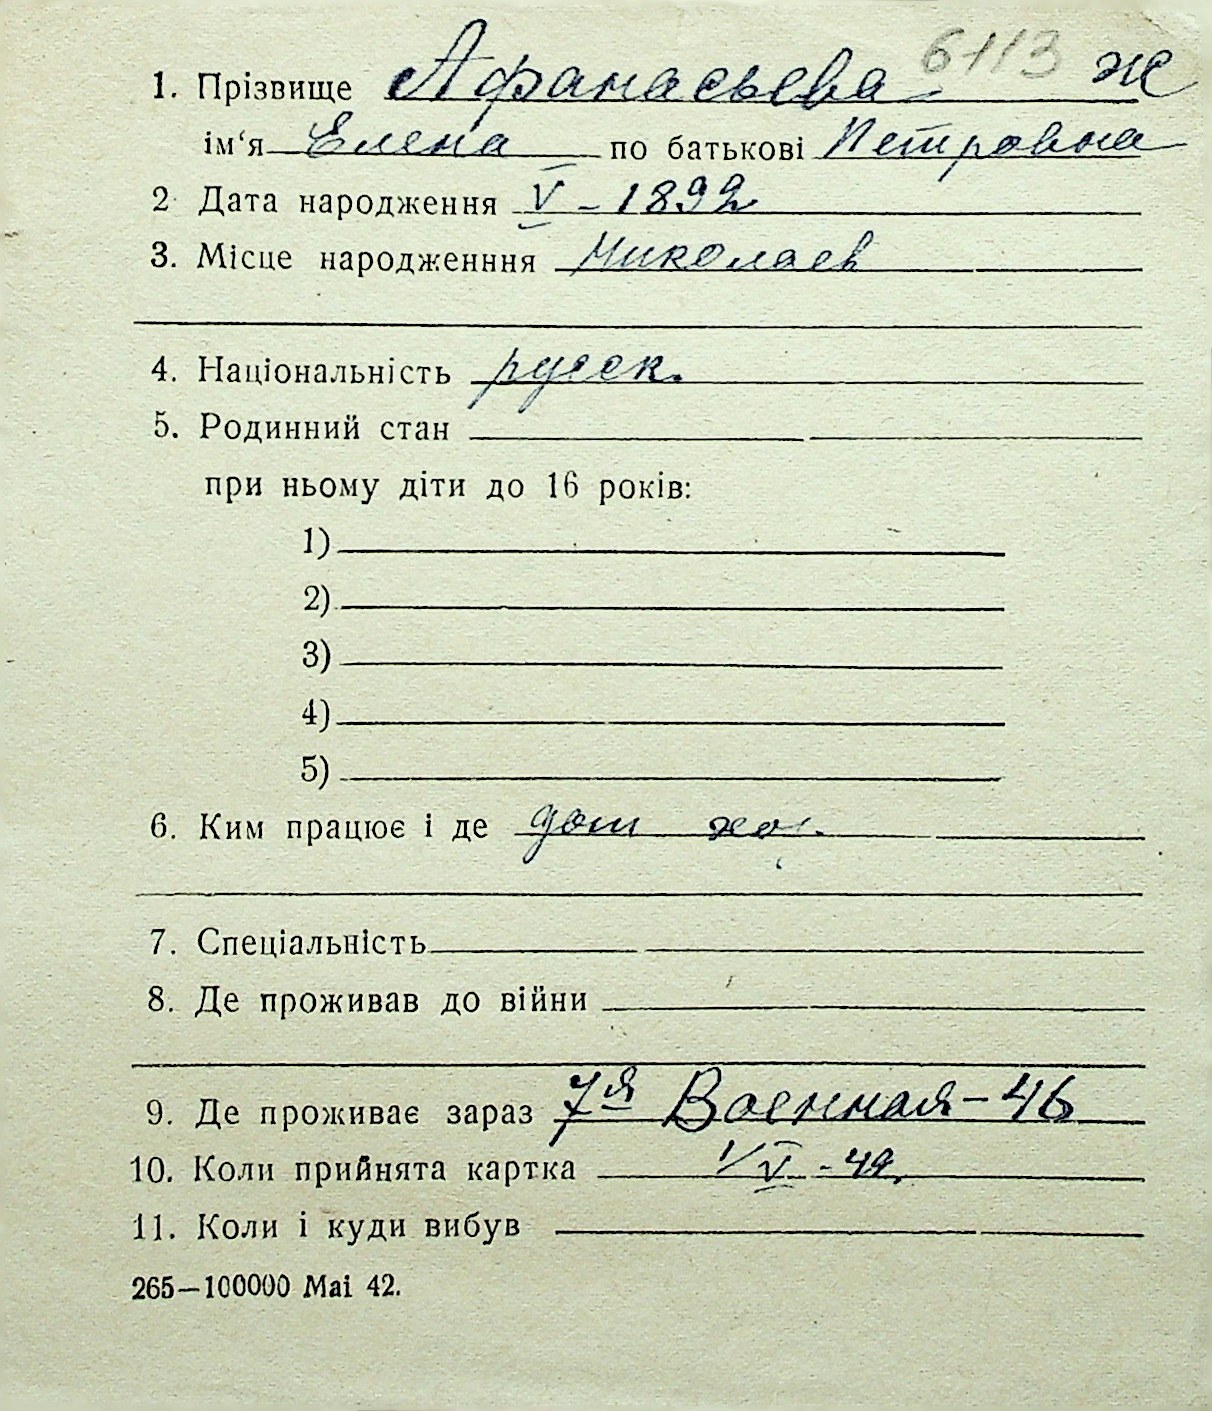 6113
1. Прізвище Афанасьева ж
ім‘я Елена по батькові Петровна
2 Дата народження V - 1892
3. Місце народженння Николаев
4. Національність русск.
5. Родинний стан
при ньому діти до 16 років:
1)
2)
3)
4)
5)
6. Ким працює і де дом хоз.
7. Спеціальність
8. Де проживав до війни
9. Де проживає зараз 7я Военная - 46
10. Коли прийнята картка 1/V - 42
11. Коли і куди вибув
265—100000 Mai 42.